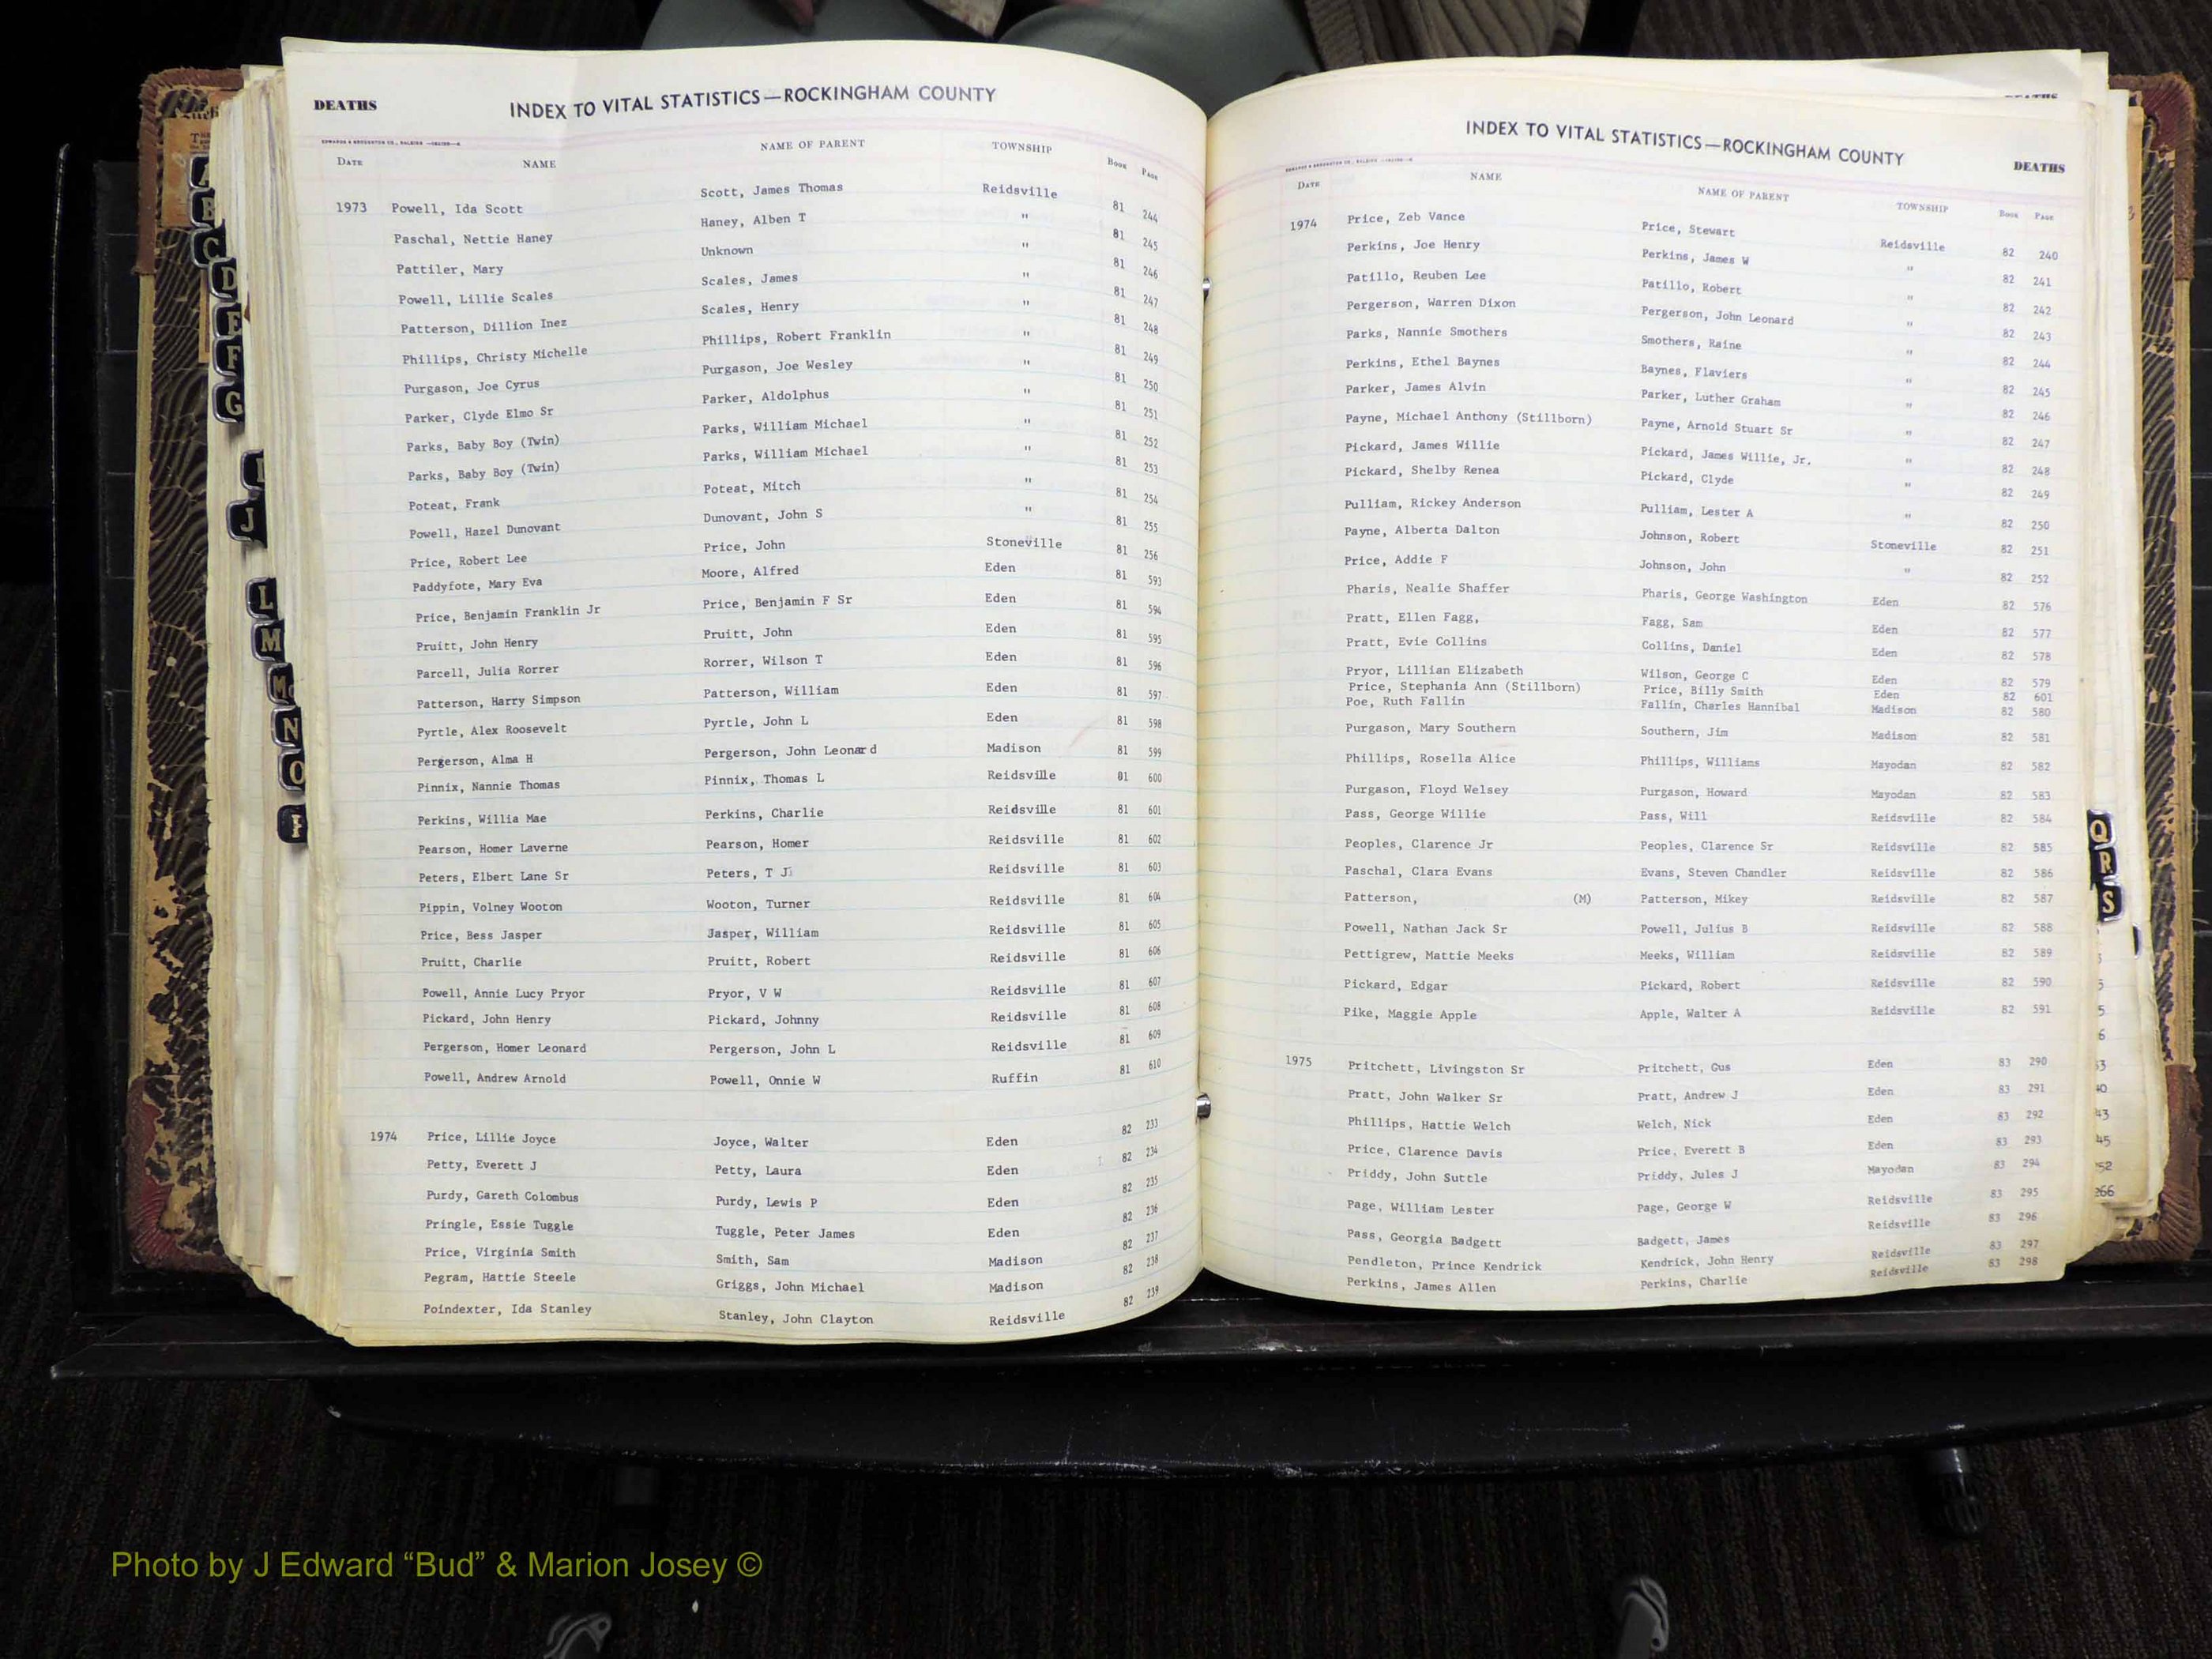 DEATHS
INDEX TO VITAL STATISTICS—ROCKINGHAM COUNTY
DATE NAME NAME OF PARENT TOWNSHIP BOOK PAGE
1973 Powell, Ida Scott Scott, James Thomas Reidsville 81 244
Paschal, Nettie Haney Haney, Alben T " 81 245
Pattiler, Mary Unknown " 81 246
Powell, Lillie Scales Scales, James " 81 247
Patterson, Dillion Inez Scales, Henry " 81 248
Phillips, Christy Michelle Phillips, Robert Franklin " 81 249
Purgason, Joe Cyrus Purgason, Joe Wesley " 81 250
Parker, Clyde Elmo Sr Parker, Aldolphus " 81 251
Parks, Baby Boy (Twin) Parks, William Michael " 81 252
Parks, Baby Boy (Twin) Parks, William Michael " 81 253
Poteat, Frank Poteat, Mitch " 81 254
Powell, Hazel Dunovant Dunovant, John S " 81 255
Price, Robert Lee Price, John Stoneville 81 256
Paddyfote, Mary Eva Moore, Alfred Eden 81 593
Price, Benjamin Franklin Jr Price, Benjamin F Sr Eden 81 594
Pruitt, John Henry Pruitt, John Eden 81 595
Parcell, Julia Rorrer Rorrer, Wilson T Eden 81 596
Patterson, Harry Simpson Patterson, William Eden 81 597
Pyrtle, Alex Roosevelt Pyrtle, John L Eden 81 598
Pergerson, Alma H Pergerson, John Leonard Madison 81 599
Pinnix, Nannie Thomas Pinnix, Thomas L Reidsville 81 600
Perkins, Willia Mae Perkins, Charlie Reidsville 81 601
Pearson, Homer Laverne Pearson, Homer Reidsville 81 602
Peters, Elbert Lane Sr Peters, T J Reidsville 81 603
Pippin, Volney Wooton Wooton, Turner Reidsville 81 604
Price, Bess Jasper Jasper, William Reidsville 81 605
Pruitt, Charlie Pruitt, Robert Reidsville 81 606
Powell, Annie Lucy Pryor Pryor, V W Reidsville 81 607
Pickard, John Henry Pickard, Johnny Reidsville 81 608
Pergerson, Homer Leonard Pergerson, John L Reidsville 81 609
Powell, Andrew Arnold Powell, Onnie W Ruffin 81 610
1974 Price, Lillie Joyce Joyce, Walter Eden 82 233
Petty, Everett J Petty, Laura Eden 82 234
Purdy, Gareth Colombus Purdy, Lewis P Eden 82 235
Pringle, Essie Tuggle Tuggle, Peter James Eden 82 236
Price, Virginia Smith Smith, Sam Madison 82 237
Pegram, Hattie Steele Griggs, John Michael Madison 82 238
Poindexter, Ida Stanley Stanley, John Clayton Reidsville 82 239
INDEX TO VITAL STATISTICS—ROCKINGHAM COUNTY
DEATHS
DATE NAME NAME OF PARENT TOWNSHIP BOOK PAGE
1974 Price, Zeb Vance Price, Stewart Reidsville 82 240
Perkins, Joe Henry Perkins, James W " 82 241
Patillo, Reuben Lee Patillo, Robert " 82 242
Pergerson, Warren Dixon Pergerson, John Leonard " 82 243
Parks, Nannie Smothers Smothers, Raine " 82 244
Perkins, Ethel Baynes Baynes, Flaviers " 82 245
Parker, James Alvin Parker, Luther Graham " 82 246
Payne, Michael Anthony (Stillborn) Payne, Arnold Stuart Sr " 82 247
Pickard, James Willie Pickard, James Willie, Jr. " 82 248
Pickard, Shelby Renea Pickard, Clyde " 82 249
Pulliam, Rickey Anderson Pulliam, Lester A " 82 250
Payne, Alberta Dalton Johnson, Robert Stoneville 82 251
Price, Addie F Johnson, John " 82 252
Pharis, Nealie Shaffer Pharis, George Washington Eden 82 576
Pratt, Ellen Fagg, Fagg, Sam Eden 82 577
Pratt, Evie Collins Collins, Daniel Eden 82 578
Pryor, Lillian Elizabeth Wilson, George C Eden 82 579
Price, Stephania Ann (Stillborn) Price, Billy Smith Eden 82 601
Poe, Ruth Fallin Fallin, Charles Hannibal Madison 82 580
Purgason, Mary Southern Southern, Jim Madison 82 581
Phillips, Rosella Alice Phillips, Williams Mayodan 82 582
Purgason, Floyd Welsey Purgason, Howard Mayodan 82 583
Pass, George Willie Pass, Will Reidsville 82 584
Peoples, Clarence Jr Peoples, Clarence Sr Reidsville 82 585
Paschal, Clara Evans Evans, Steven Chandler Reidsville 82 586
Patterson, (M) Patterson, Mikey Reidsville 82 587
Powell, Nathan Jack Sr Powell, Julius B Reidsville 82 588
Pettigrew, Mattie Meeks Meeks, William Reidsville 82 589
Pickard, Edgar Pickard, Robert Reidsville 82 590
Pike, Maggie Apple Apple, Walter A Reidsville 82 591
1975 Pritchett, Livingston Sr Pritchett, Gus Eden 83 290
Pratt, John Walker Sr Pratt, Andrew J Eden 83 291
Phillips, Hattie Welch Welch, Nick Eden 83 292
Price, Clarence Davis Price, Everett B Eden 83 293
Priddy, John Suttle Priddy, Jules J Mayodan 83 294
Page, William Lester Page, George W Reidsville 83 295
Pass, Georgia Badgett Badgett, James Reidsville 83 296
Pendleton, Prince Kendrick Kendrick, John Henry Reidsville 83 297
Perkins, James Allen Perkins, Charlie Reidsville 83 298
C
D
F
G
J
L
M
N
O
Q
R
S
Photo by J Edward “Bud” & Marion Josey ©